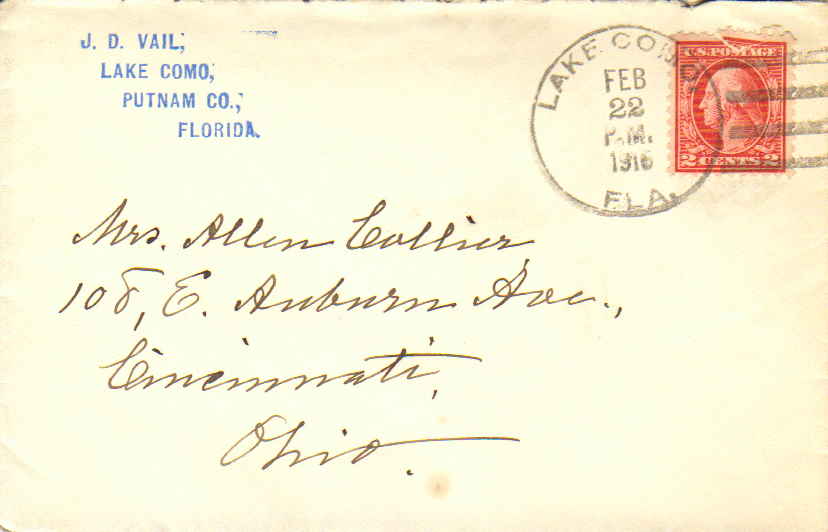 J. D. VAIL,
LAKE COMO,
PUTNAM CO.,
FLORIDA.
LAKE COMO,
FEB
22
P.M.
1916
FLA.
U.S. POSTAGE
2 CENTS 2
Mrs. Allen Collier,
108, E. Auburn Ave.,
Cincinnati,
Ohio.